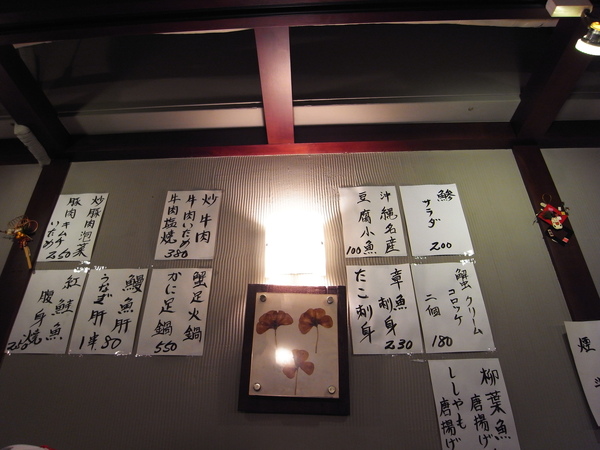 炒豚肉泡菜
豚肉キムチいため
250
炒牛肉
牛肉いため
牛肉塩焼
380
沖縄名産
豆腐小魚
100
鰺
サラダ
200
紅鮭魚
腹身焼
250
鰻魚肝
うなぎ肝
1串80
蟹足火鍋
かに足鍋
550
章魚刺身
たこ刺身
230
蟹クリーム
コロッケ
二個
180
柳葉魚
唐揚げ
ししゃも
唐揚げ
煙